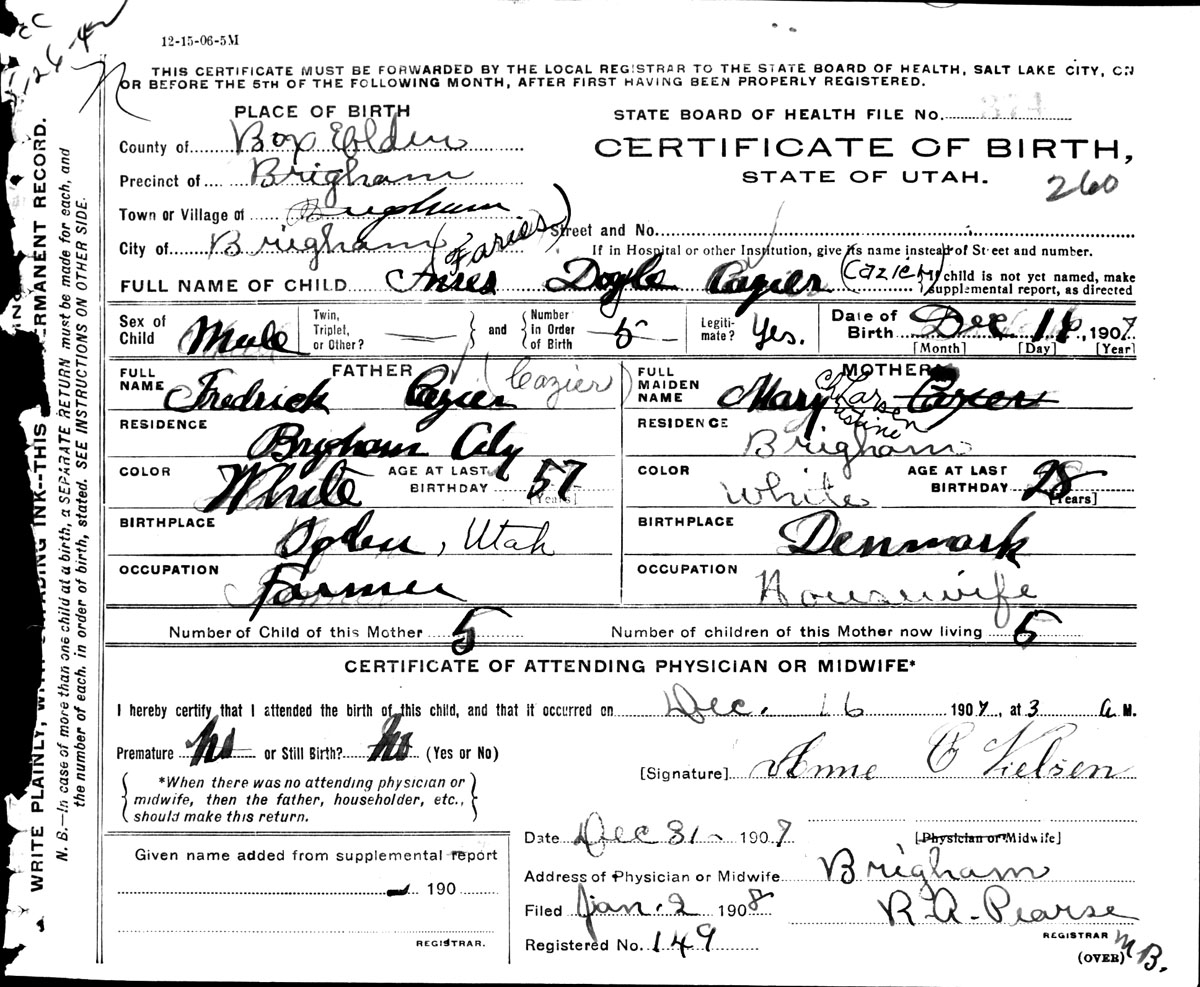 12-15-06-5M
THIS CERTIFICATE MUST BE FORWARDED BY THE LOCAL REGISTRAR TO THE STATE BOARD OF HEALTH, SALT LAKE CITY, ON
OR BEFORE THE 5TH OF THE FOLLOWING MONTH, AFTER FIRST HAVING BEEN PROPERLY REGISTERED.
PLACE OF BIRTH
STATE BOARD OF HEALTH FILE No. 374
County of Box Elder
CERTIFICATE OF BIRTH,
Precinct of Brigham
STATE OF UTAH.
260
Town or Village of Brigham
City of Brigham Street and No.
If in Hospital or other Institution, give its name instead of Street and number.
FULL NAME OF CHILD Doyle Cazier (Cazier) child is not yet named, make
supplemental report, as directed
Sex of Child Male Twin, Triplet, or Other? — and Number in Order of Birth 5 Legitimate? Yes. Date of Birth Dec. 16, 1907
[Month] [Day] [Year]
FATHER
MOTHER
FULL NAME Fredrick Cazier (Cazier)
FULL MAIDEN NAME Mary Christine Larsen Cazier
RESIDENCE Brigham City
RESIDENCE Brigham
COLOR White AGE AT LAST BIRTHDAY 57 [Years]
COLOR White AGE AT LAST BIRTHDAY 28 [Years]
BIRTHPLACE Ogden, Utah
BIRTHPLACE Denmark
OCCUPATION Farmer
OCCUPATION Housewife
Number of Child of this Mother 5 Number of children of this Mother now living 5
CERTIFICATE OF ATTENDING PHYSICIAN OR MIDWIFE*
I hereby certify that I attended the birth of this child, and that it occurred on Dec. 16 1907, at 3 a M.
Premature no or Still Birth? no (Yes or No)
[Signature] Anne C Nielsen
*When there was no attending physician or
midwife, then the father, householder, etc.,
should make this return.
Date Dec 31 1907 [Physician or Midwife]
Given name added from supplemental report
190
REGISTRAR.
Address of Physician or Midwife Brigham
Filed Jan. 2 1908 R. A. Pearse
REGISTRAR
Registered No. 149
(OVER)
M B.
WRITE PLAINLY, INK--THIS PERMANENT RECORD.
N. B.—In case of more than one child at a birth, a SEPARATE RETURN must be made for each, and
the number of each, in order of birth, stated. SEE INSTRUCTIONS ON OTHER SIDE.